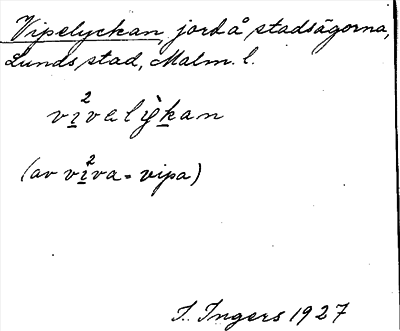 Vipelyckan, jord å stadsägorna,
Lunds stad, Malm. l.
vi²valỳkan
(av vi²va = vipa)
I. Ingers 1927